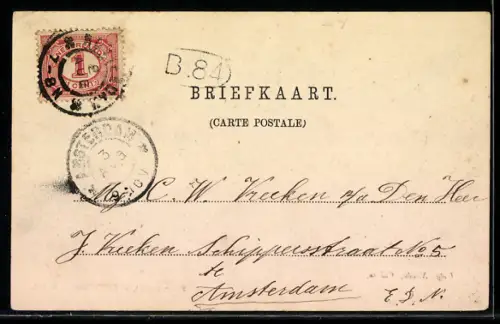 1
B.84
BRIEFKAART.
(CARTE POSTALE)
AMSTERDAM
Mej. C. W. Vreeken p/a Den Heer
J. Vreeken Schippersstraat No 5
te
Amsterdam
E. G. N.